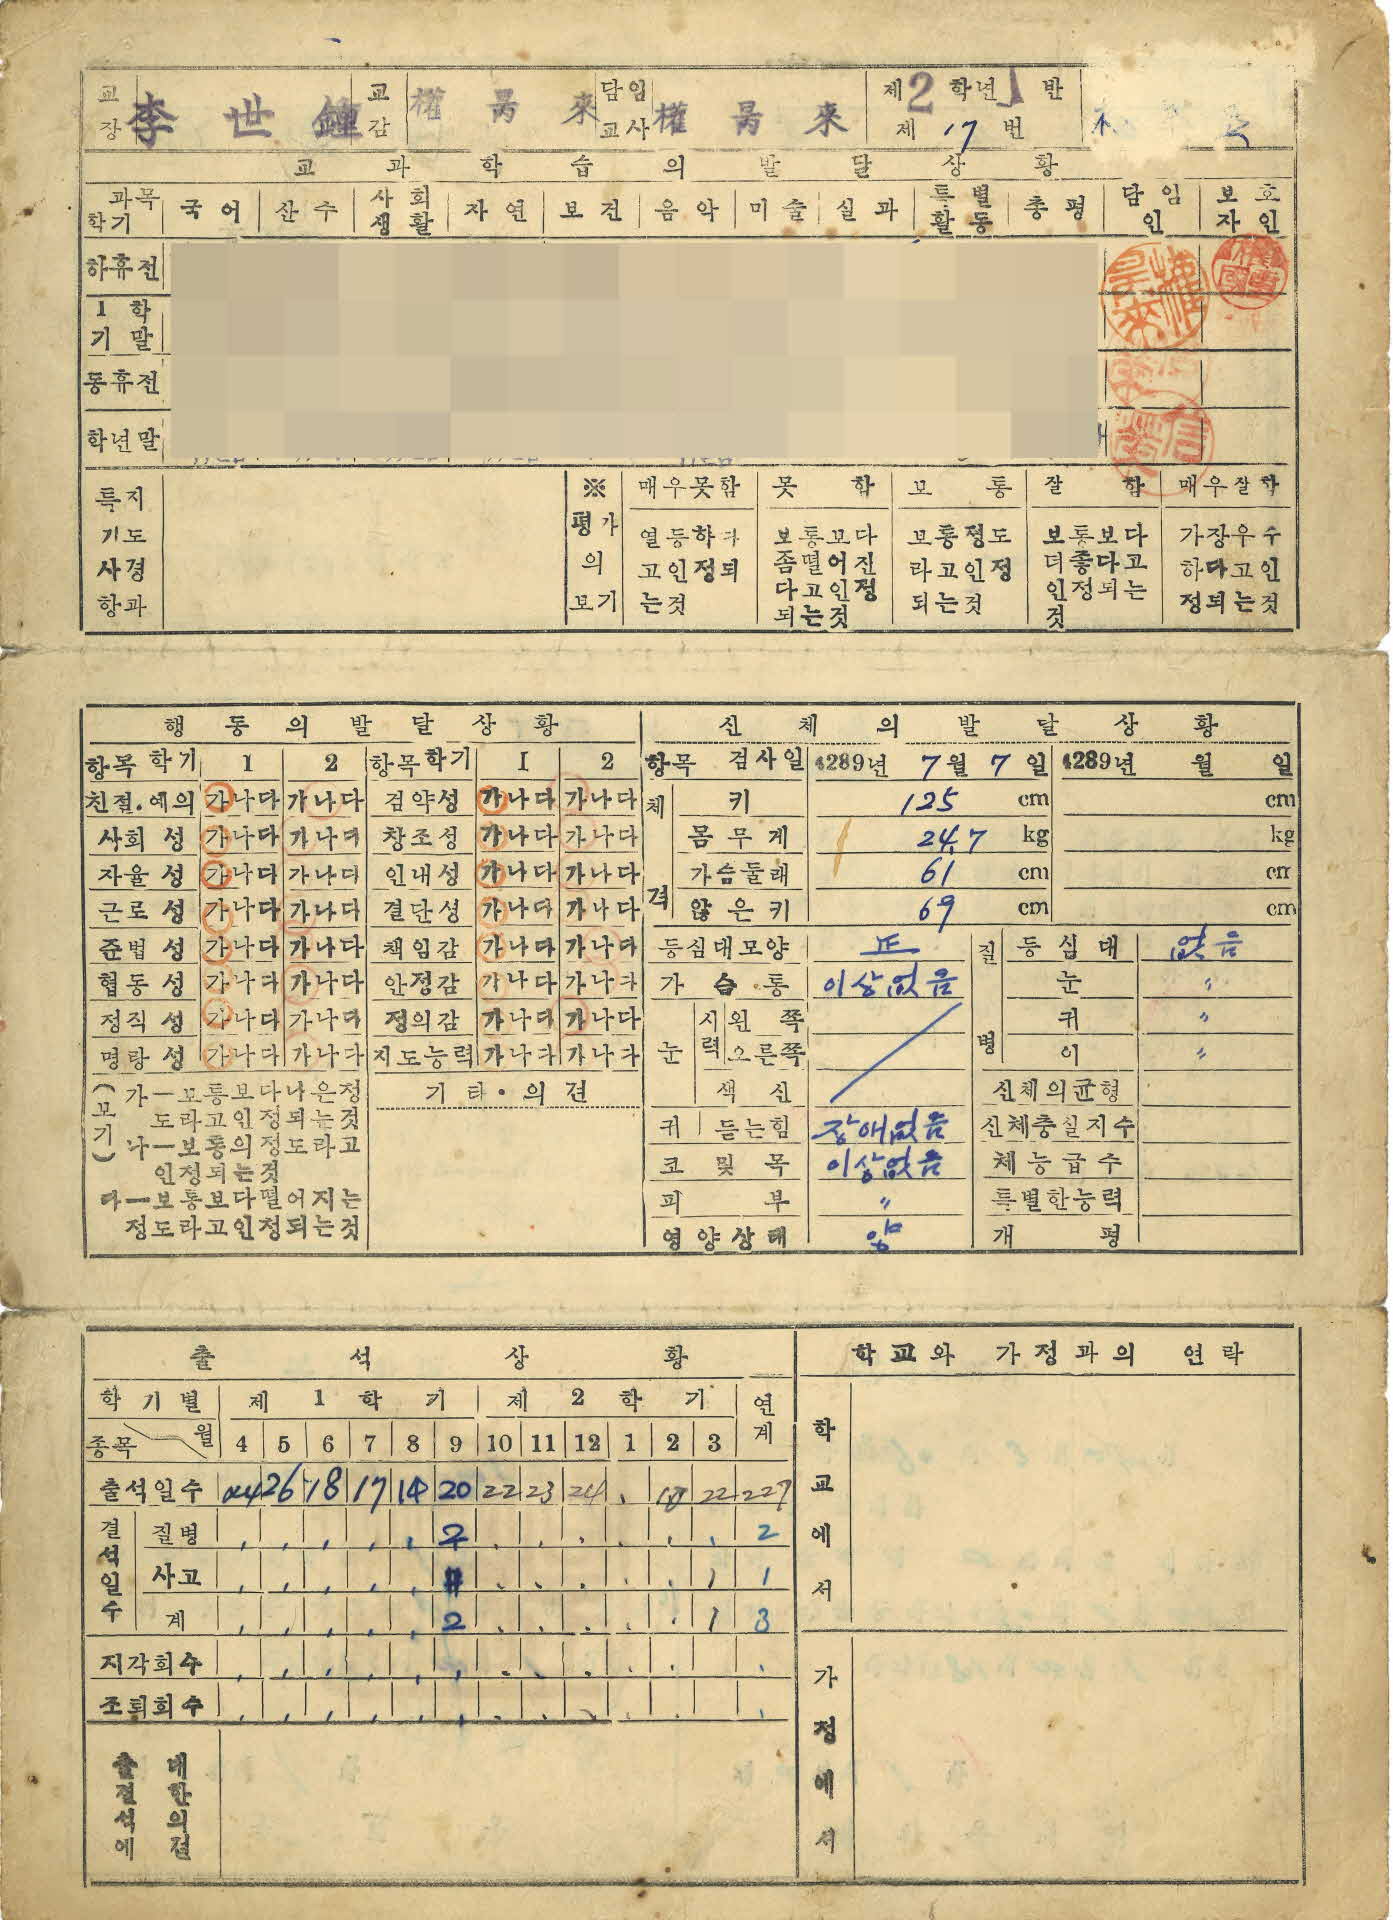 교장 李世鍾 교감 權昺來 담임교사 權昺來 제2학년 1반 제17번
교과학습의 발달상황
과목 학기 국어 산수 사회생활 자연 보건 음악 미술 실과 특별활동 총평 담임인 보호자인
하휴전
1학기말
동휴전
학년말
특기사항 지도경과
※ 평가의 보기 매우못함 못함 보통 잘함 매우잘함
열등하다고인정되는것 보통보다좀떨어진다고인정되는것 보통정도라고인정되는것 보통보다더좋다고인정되는것 가장우수하다고인정되는것
행동의 발달상황
항목 학기 1 2 항목 학기 1 2
친절·예의 가나다 가나다 검약성 가나다 가나다
사회성 가나다 가나다 창조성 가나다 가나다
자율성 가나다 가나다 인내성 가나다 가나다
근로성 가나다 가나다 결단성 가나다 가나다
준법성 가나다 가나다 책임감 가나다 가나다
협동성 가나다 가나다 안정감 가나다 가나다
정직성 가나다 가나다 정의감 가나다 가나다
명랑성 가나다 가나다 지도능력 가나다 가나다
(보기) 가—보통보다나은정도라고인정되는것
나—보통의정도라고인정되는것
다—보통보다떨어지는정도라고인정되는것
기타·의견
신체의 발달상황
항목 검사일 4289년 7월 7일 4289년 월 일
체격 키 125 cm cm
몸무게 24.7 kg kg
가슴둘레 61 cm cm
앉은키 69 cm cm
등심대모양 正 질병 등심대 없음
가슴통 이상없음 눈 〃
눈 시력 왼쪽 귀 〃
오른쪽 이 〃
색신 신체의균형
귀 듣는힘 장애없음 신체충실지수
코및목 이상없음 체능급수
피부 〃 특별한능력
영양상태 양 개평
출석상황
학기별 제1학기 제2학기 연계
종목 월 4 5 6 7 8 9 10 11 12 1 2 3
출석일수 24 26 18 17 14 20 22 23 24 . 18 22 227
결석일수 질병 2 2
사고 1 1
계 2 1 3
지각회수
조퇴회수
출결석에 대한의견
학교와 가정과의 연락
학교에서
가정에서